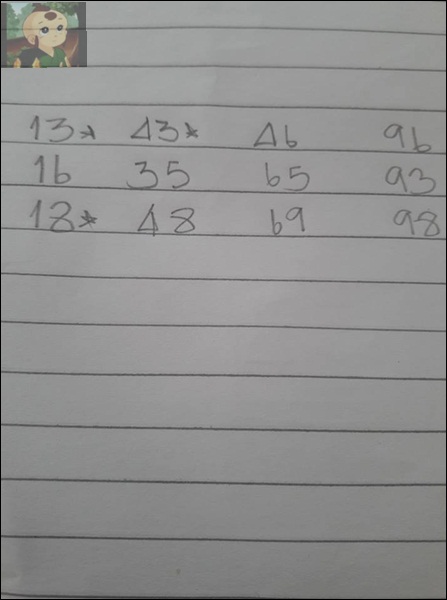 13* 43* 46 96
16 35 65 93
18* 48 69 98